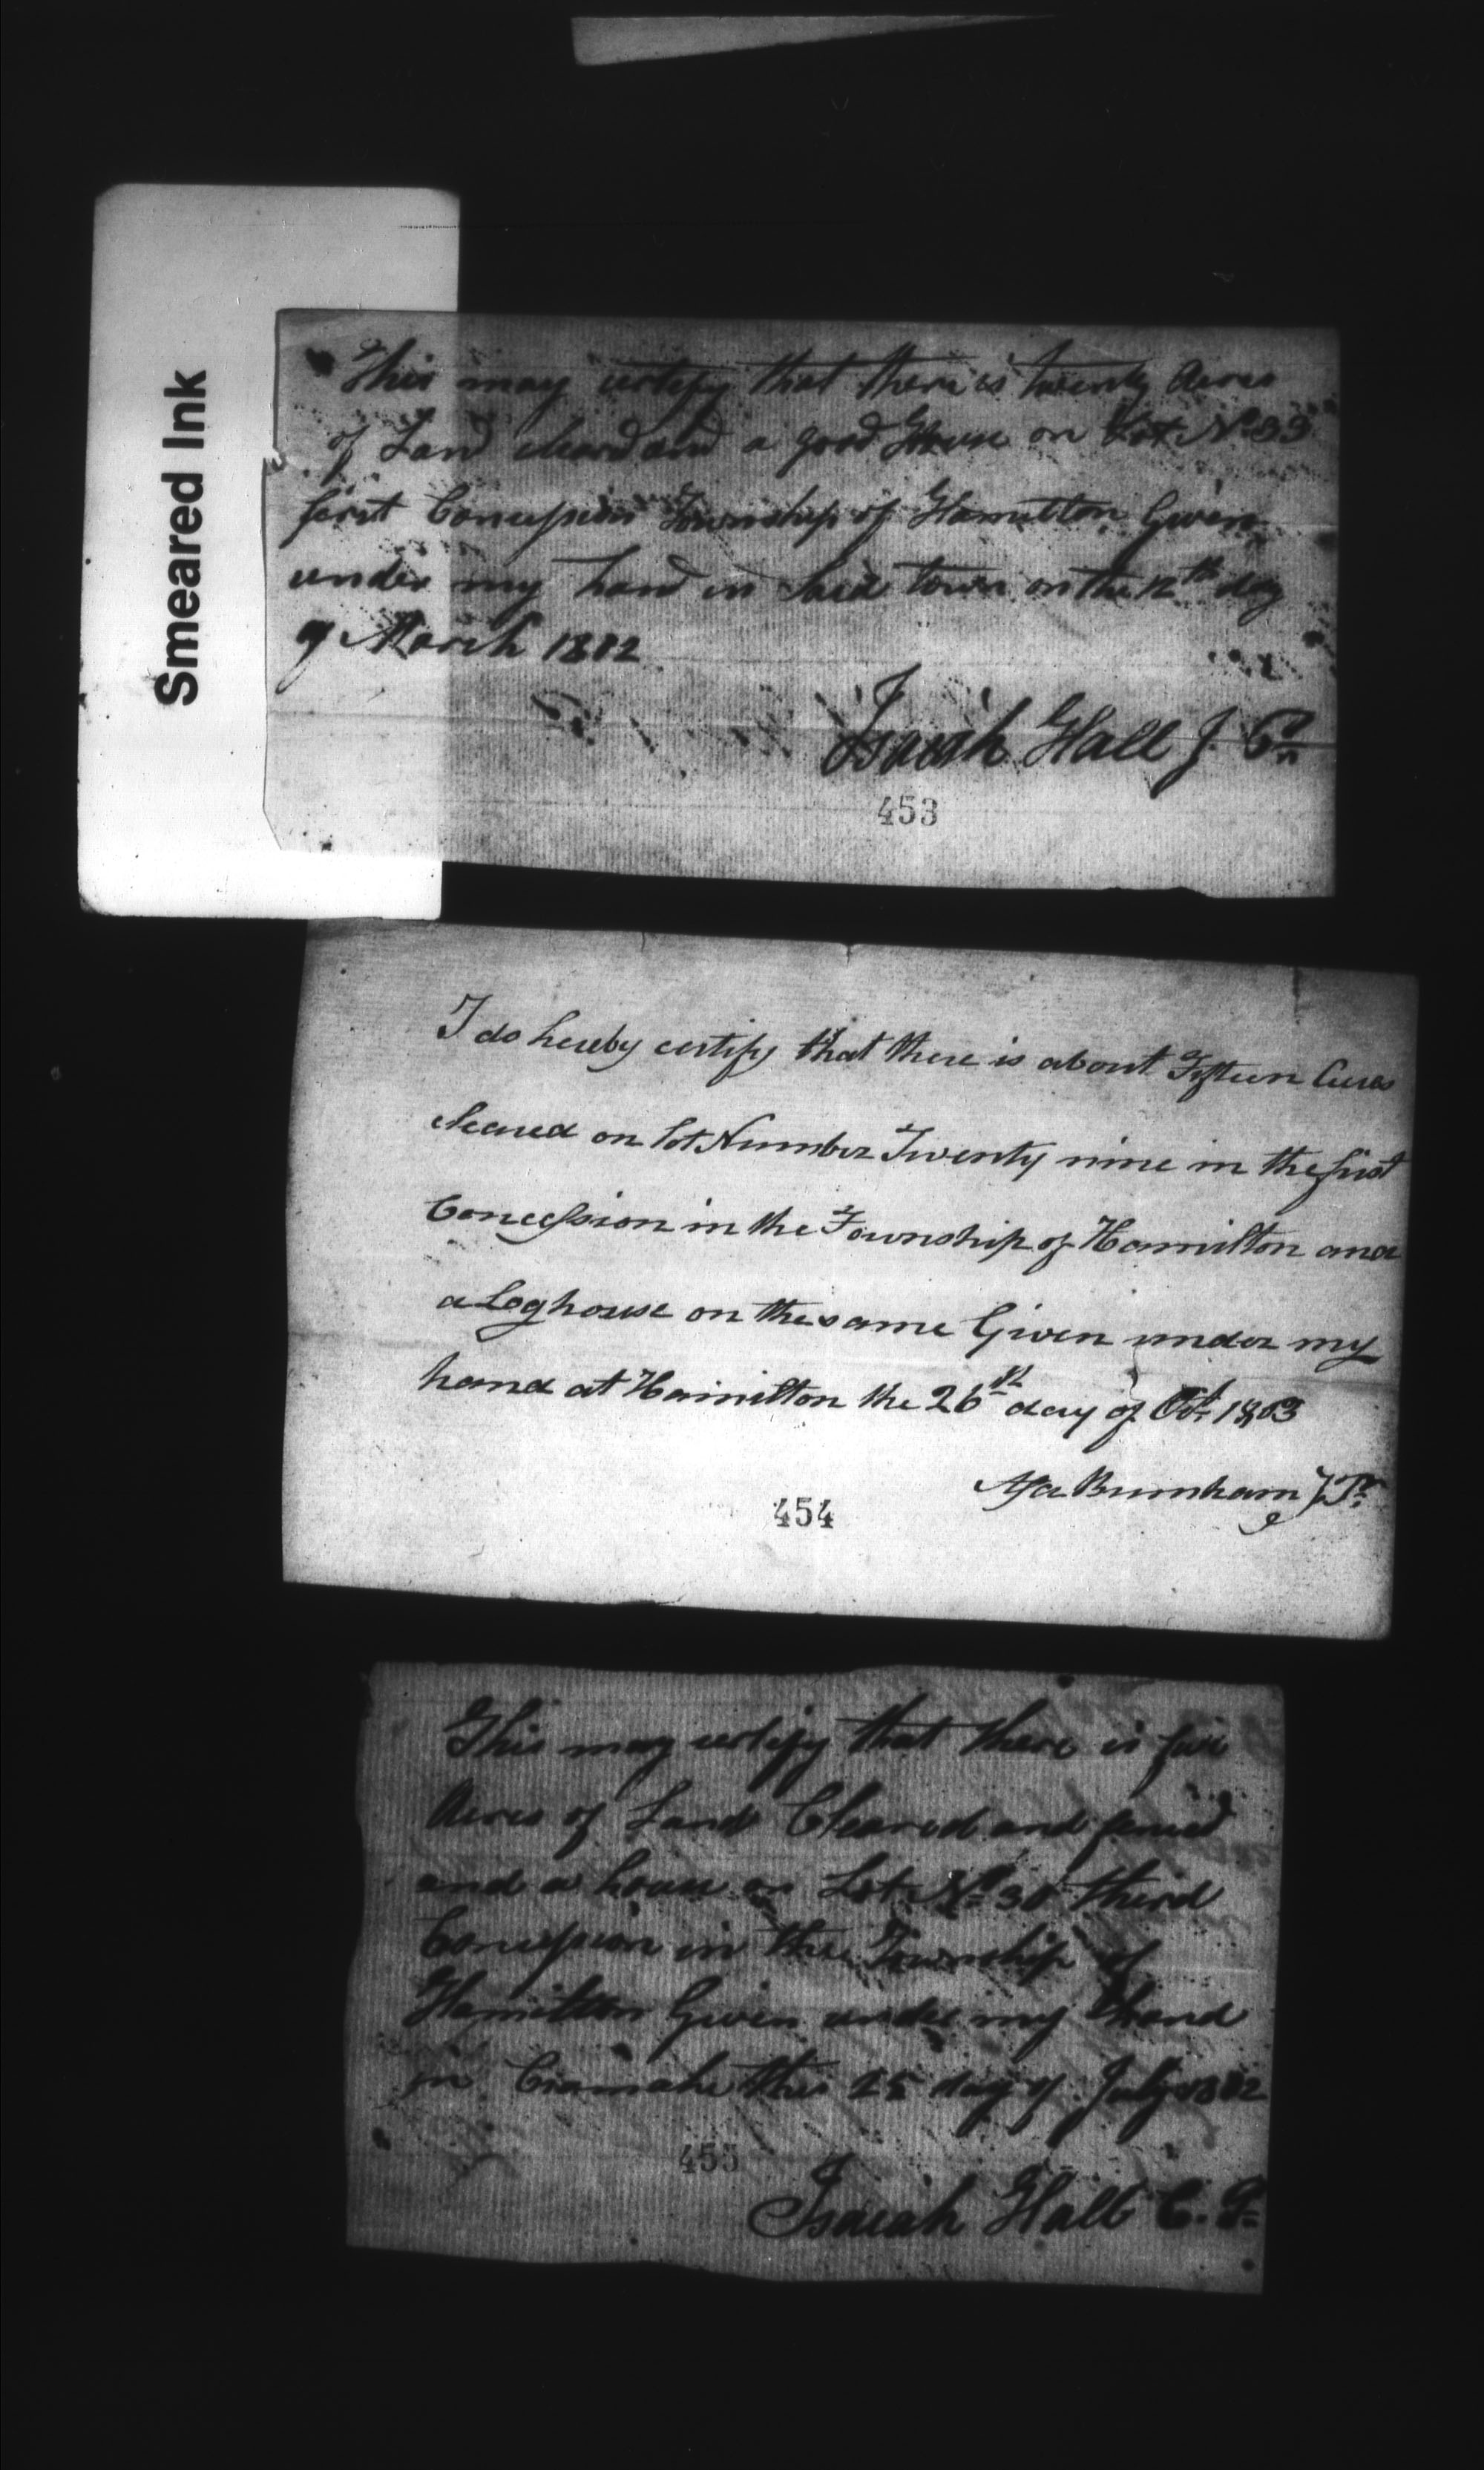 Smeared Ink
This may certify that there is twenty Acres
of Land cleard and a good House on Lot No 33
first Concession Township of Hamilton Given
under my hand in Said town on the 12th day
of March 1802
Isaiah Hall J. P.
453
I do hereby certify that there is about Fifteen Acres
cleared on lot Number Twenty nine in the first
Concession in the Township of Hamilton and
a Loghouse on the same Given under my
hand at Hamilton the 26th day of Oct. 1803
Asa Burnham J.P.
454
This may certify that there is five
Acres of Land Cleared and fenced
and a house on Lot No 30 third
Concession in the Township of
Hamilton Given under my Hand
in Cramahe this 25 day of July 1802
455
Isaiah Hall